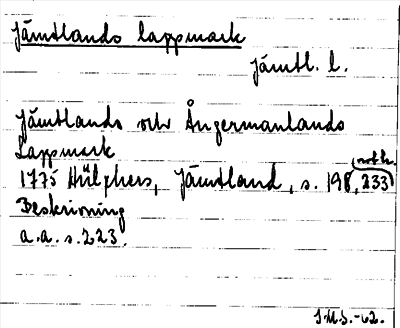 Jämtlands lappmark
Jämtl. l.
Jämtlands och Ångermanlands
Lappmark
not k.
1775 Hülphers, Jämtland, s. 198, 233
Beskrivning
a.a. s. 223.
J.M.S. -62.